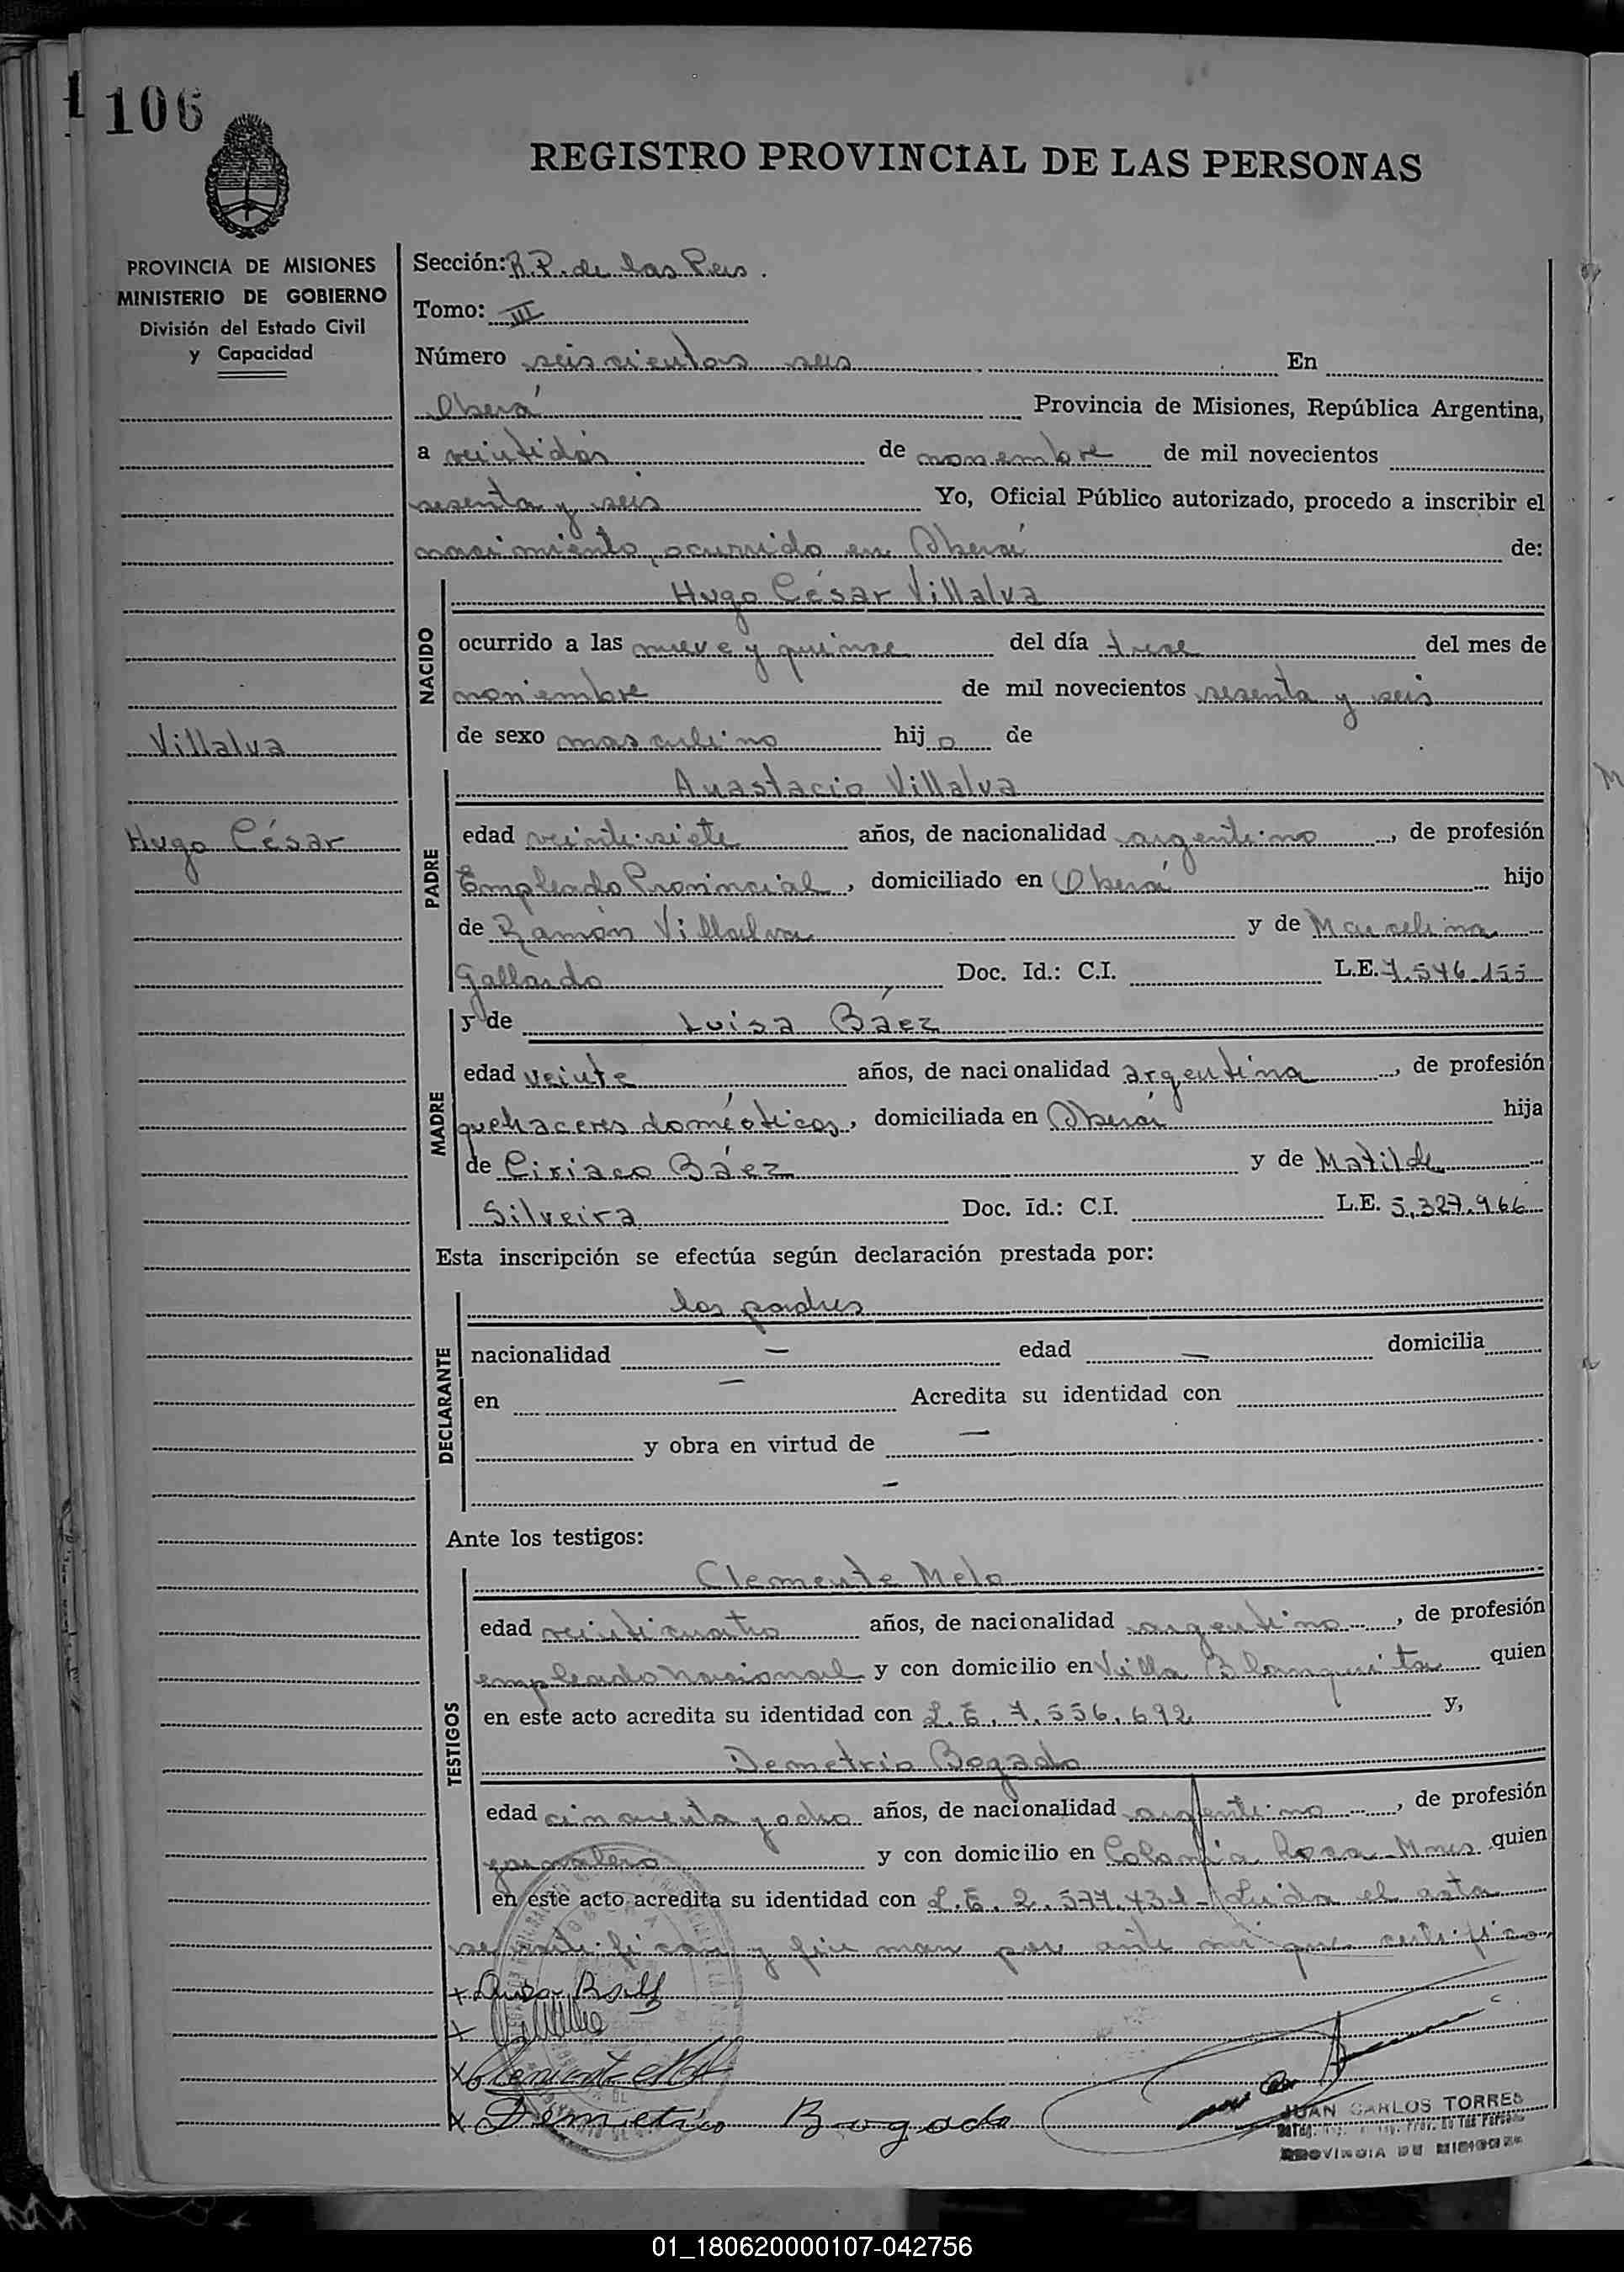 106
REGISTRO PROVINCIAL DE LAS PERSONAS
PROVINCIA DE MISIONES
MINISTERIO DE GOBIERNO
División del Estado Civil
y Capacidad
Villalva
Hugo César
Sección: R.P. de las Pers.
Tomo: III
Número seiscientos seis En
Oberá Provincia de Misiones, República Argentina,
a veintidós de noviembre de mil novecientos
sesenta y seis Yo, Oficial Público autorizado, procedo a inscribir el
nacimiento, ocurrido en Oberá de:
NACIDO
Hugo César Villalva
ocurrido a las nueve y quince del día trece del mes de
noviembre de mil novecientos sesenta y seis
de sexo masculino hijo de
PADRE
Anastacio Villalva
edad veintisiete años, de nacionalidad argentino, de profesión
Empleado Provincial, domiciliado en Oberá hijo
de Ramón Villalva y de Marcelina
Gallardo Doc. Id.: C.I. L.E. 7.546.155
MADRE
y de Luisa Báez
edad veinte años, de nacionalidad argentina, de profesión
quehaceres domésticos, domiciliada en Oberá hija
de Ciriaco Báez y de Matilde
Silveira Doc. Id.: C.I. L.E. 5.327.966
Esta inscripción se efectúa según declaración prestada por:
DECLARANTE
los padres
nacionalidad — edad — domicilia
en — Acredita su identidad con
y obra en virtud de —
—
Ante los testigos:
TESTIGOS
Clemente Melo
edad veinticuatro años, de nacionalidad argentino, de profesión
empleado nacional y con domicilio en Villa Blanquita quien
en este acto acredita su identidad con L.E. 7.556.692 y,
Demetrio Bogado
edad cincuenta y ocho años, de nacionalidad argentino, de profesión
jornalero y con domicilio en Colonia quien
en este acto acredita su identidad con L.E. 2.577.431- Leída el acta
se ratifican y firman por ante mí que certifico
Demetrio Bogado
JUAN CARLOS TORRES
PROVINCIA DE MISIONES
01_180620000107-042756